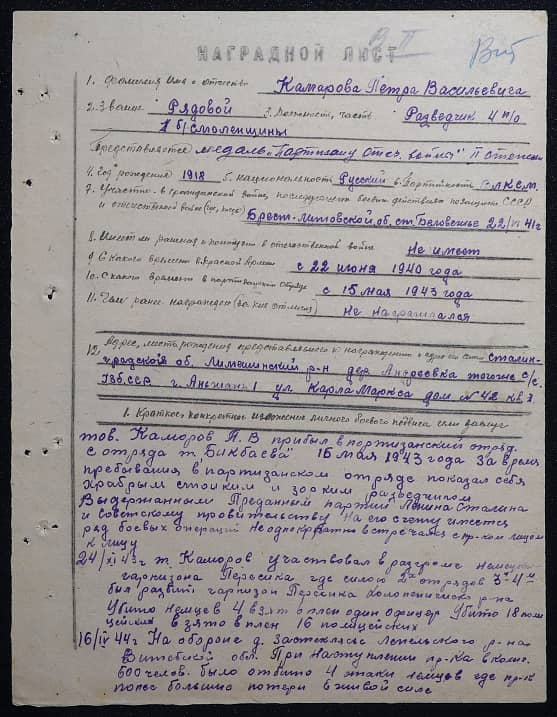 Вит
НАГРАДНОЙ ЛИСТ
1. Фамилия Имя и отчество Камарова Петра Васильевича
2. Звание Рядовой 3. Должность, часть Разведчик 4 п/о
1 б/Смоленщины
Представляется медаль „Партизану Отеч. войны" II степени
4. Год рождения 1918 5. Национальность Русский 6. Партийность ВЛКСМ
7. Участие в гражданской войне, последующих боевых действиях по защите СССР
и отечественной войне (где, когда) Брест-литовской, об. ст. Беловежье 22/VI 41 г
8. Имеет ли ранения и контузии в отечественной войне Не имеет
9. С какого времени в Красной Армии с 22 июня 1940 года
10. С какого времени в партизанском отряде с 15 мая 1943 года
11. Чем ранее награжден (за какие отличия) не награжался
12. Адрес, место рождения представляемого к награждению и адрес его семьи Сталин-
градской об. р-н дер Андреевка того же с/с.
Узб. ССР г. ул. Карла Маркса дом № 42 кв 3
1. Краткое, конкретное изложение личного боевого подвига или заслуг
тов. Каморов П. В прибыл в партизанский отряд
с отряда т. „Бикбаева" 15 мая 1943 года За время
пребывания в партизанском отряде показал себя
храбрым стойким и зорким разведчиком
Выдержанным Преданным партии Ленина Сталина
и Советскому провительству На его счету имется
ряд боевых операций Неоднократно встречался с пр-ком лицом
к лицу
24/XI 43 г т. Каморов участвовал в разгроме немецкого
гарнизона Пересика где силою 2х отрядов 3 4м
был развит гарнизон Пересика Холопеничского р-на
Убито немцев 4 взят в плен один офицер Убито 18 поли
цейских взято в плен 16 полицейских
16/IV 44 г. На обороне д. Лепельского р-на
Витебской обл. При наступлении пр-ка в колич.
600 челов. было отбито 4 атаки немцев где пр-к
понес большие потери в живой силе